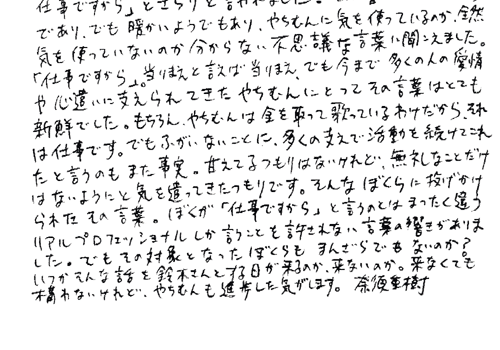 仕事ですから」とさらりと言われました。
であり、でも暖かいようでもあり、やちむんに気を使っているのか、全然
気を使っていないのか分からない不思議な言葉に聞こえました。
「仕事ですから」。当りまえと言えば当りまえ、でも今まで多くの人の愛情
や心遣いに支えられてきたやちむんにとってその言葉はとても
新鮮でした。もちろん、やちむんは金を取って歌っているわけだから、それ
は仕事です。でもふがいないことに、多くの支えで活動を続けてこれ
たと言うのもまた事実。甘えてるつもりはないけれど、無礼なことだけ
はないようにと気を遣ってきたつもりです。そんなぼくらに投げかけ
られたその言葉。ぼくが「仕事ですから」と言うのとはまったく違う
リアルプロフェッショナルしか言うことを許されない言葉の響きがありま
した。でもその対象となったぼくらもまんざらでもないのか?
いつかそんな話を鈴木さんとする日が来るのか、来ないのか。来なくても
構わないけれど、やちむんも進歩した気がします。 奈須重樹